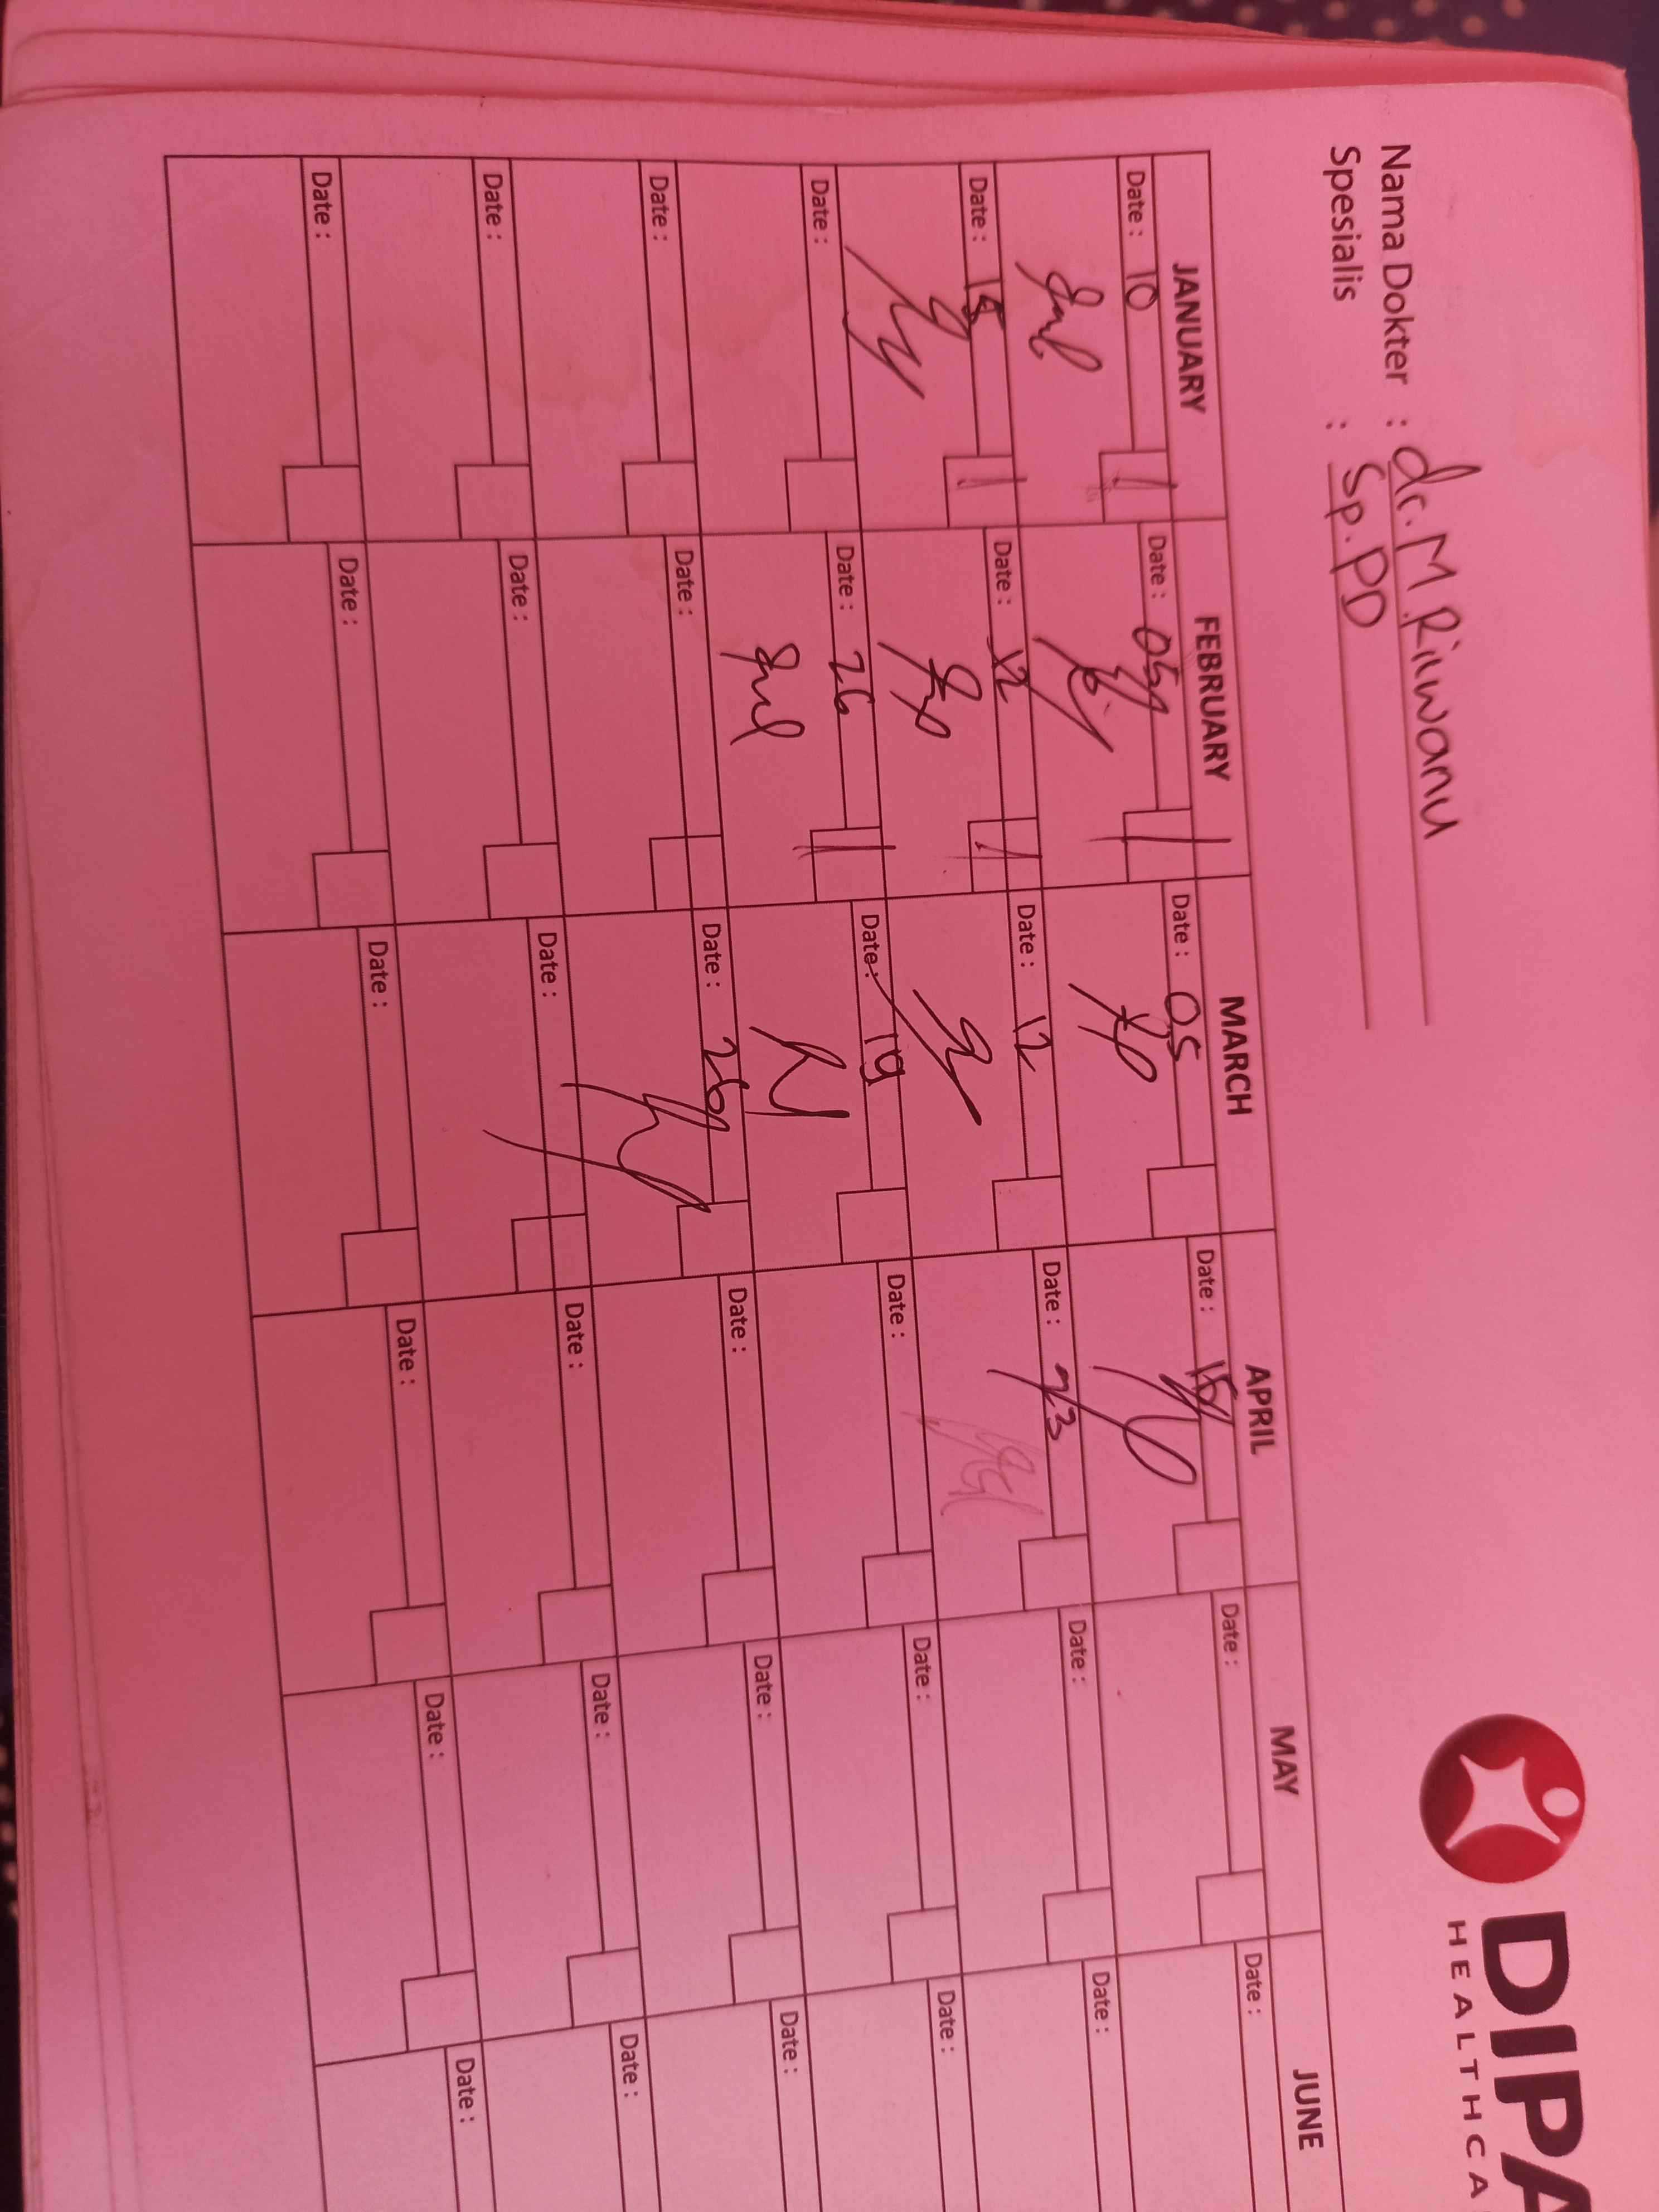 DIPA
HEALTHCA
Nama Dokter : dr. M. Riiwanu
Spesialis : Sp.PD
JANUARY FEBRUARY MARCH APRIL MAY JUNE
Date : 10 Date : 05 Date : 05 Date : 15 Date : Date :
Date : 15 Date : 12 Date : 12 Date : 23 Date : Date :
Date : Date : 26 Date : 19 Date : Date : Date :
Date : Date : Date : 26 Date : Date : Date :
Date : Date : Date : Date : Date : Date :
Date : Date : Date : Date : Date : Date :